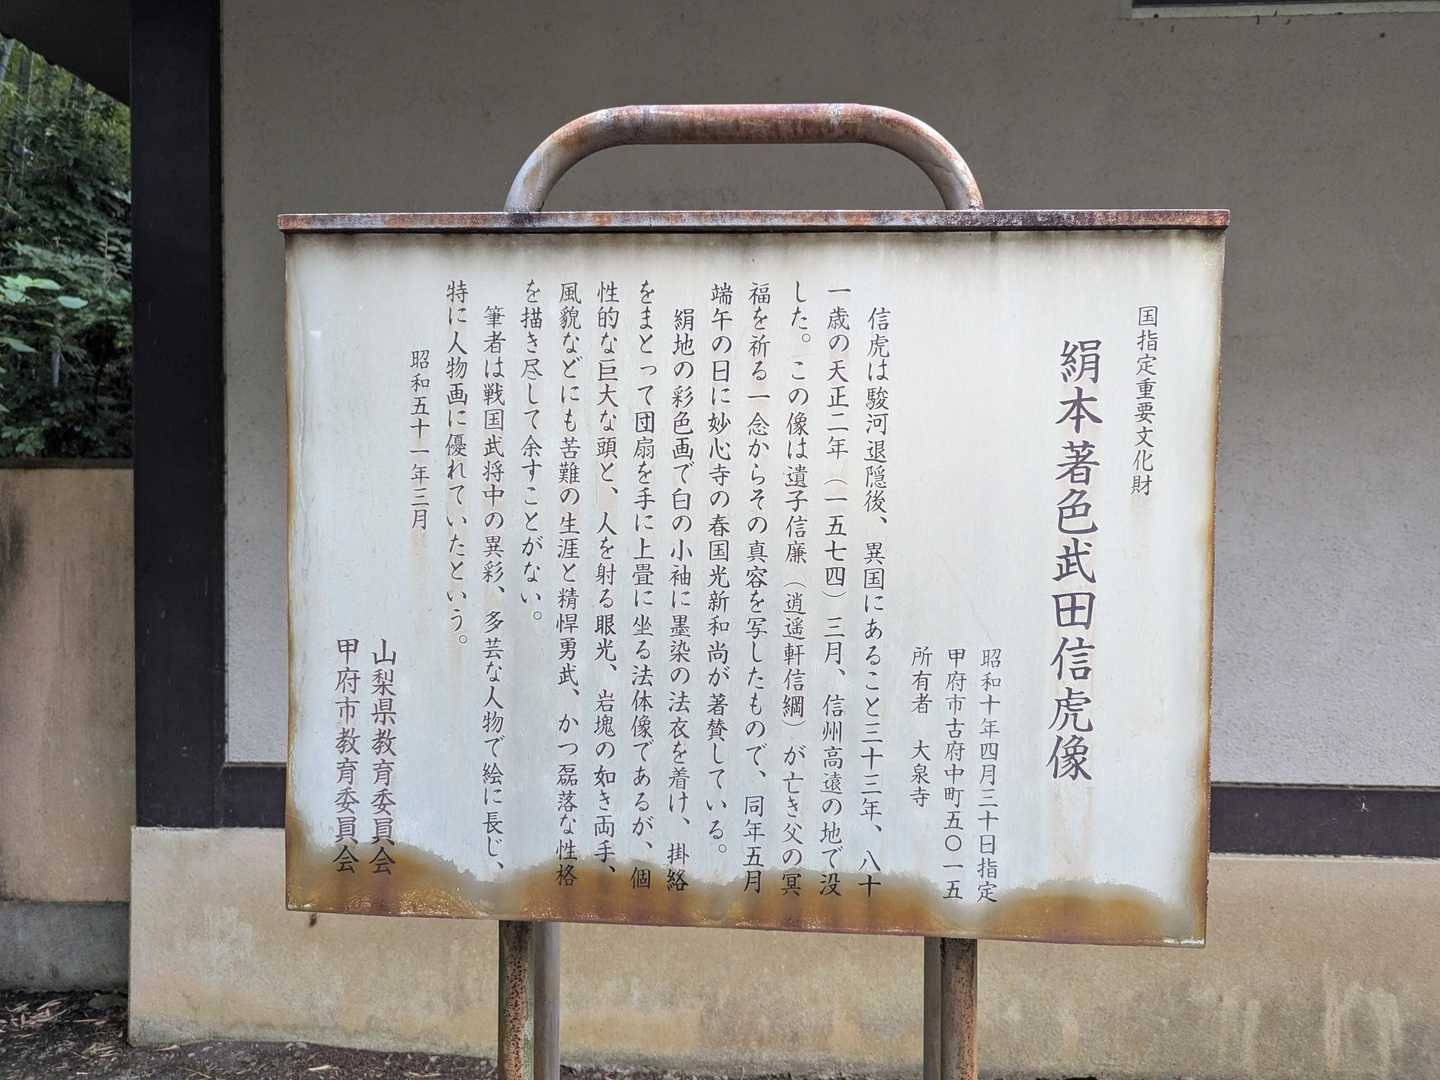 国指定重要文化財
絹本著色武田信虎像
昭和十年四月三十日指定
甲府市古府中町五〇一五
所有者　大泉寺
信虎は駿河退隠後、異国にあること三十三年、八十
一歳の天正二年（一五七四）三月、信州高遠の地で没
した。この像は遺子信廉（逍遥軒信綱）が亡き父の冥
福を祈る一念からその真容を写したもので、同年五月
端午の日に妙心寺の春国光新和尚が著賛している。
絹地の彩色画で白の小袖に墨染の法衣を着け、掛絡
をまとって団扇を手に上畳に坐る法体像であるが、個
性的な巨大な頭と、人を射る眼光、岩塊の如き両手、
風貌などにも苦難の生涯と精悍勇武、かつ磊落な性格
を描き尽して余すことがない。
筆者は戦国武将中の異彩、多芸な人物で絵に長じ、
特に人物画に優れていたという。
昭和五十一年三月
山梨県教育委員会
甲府市教育委員会